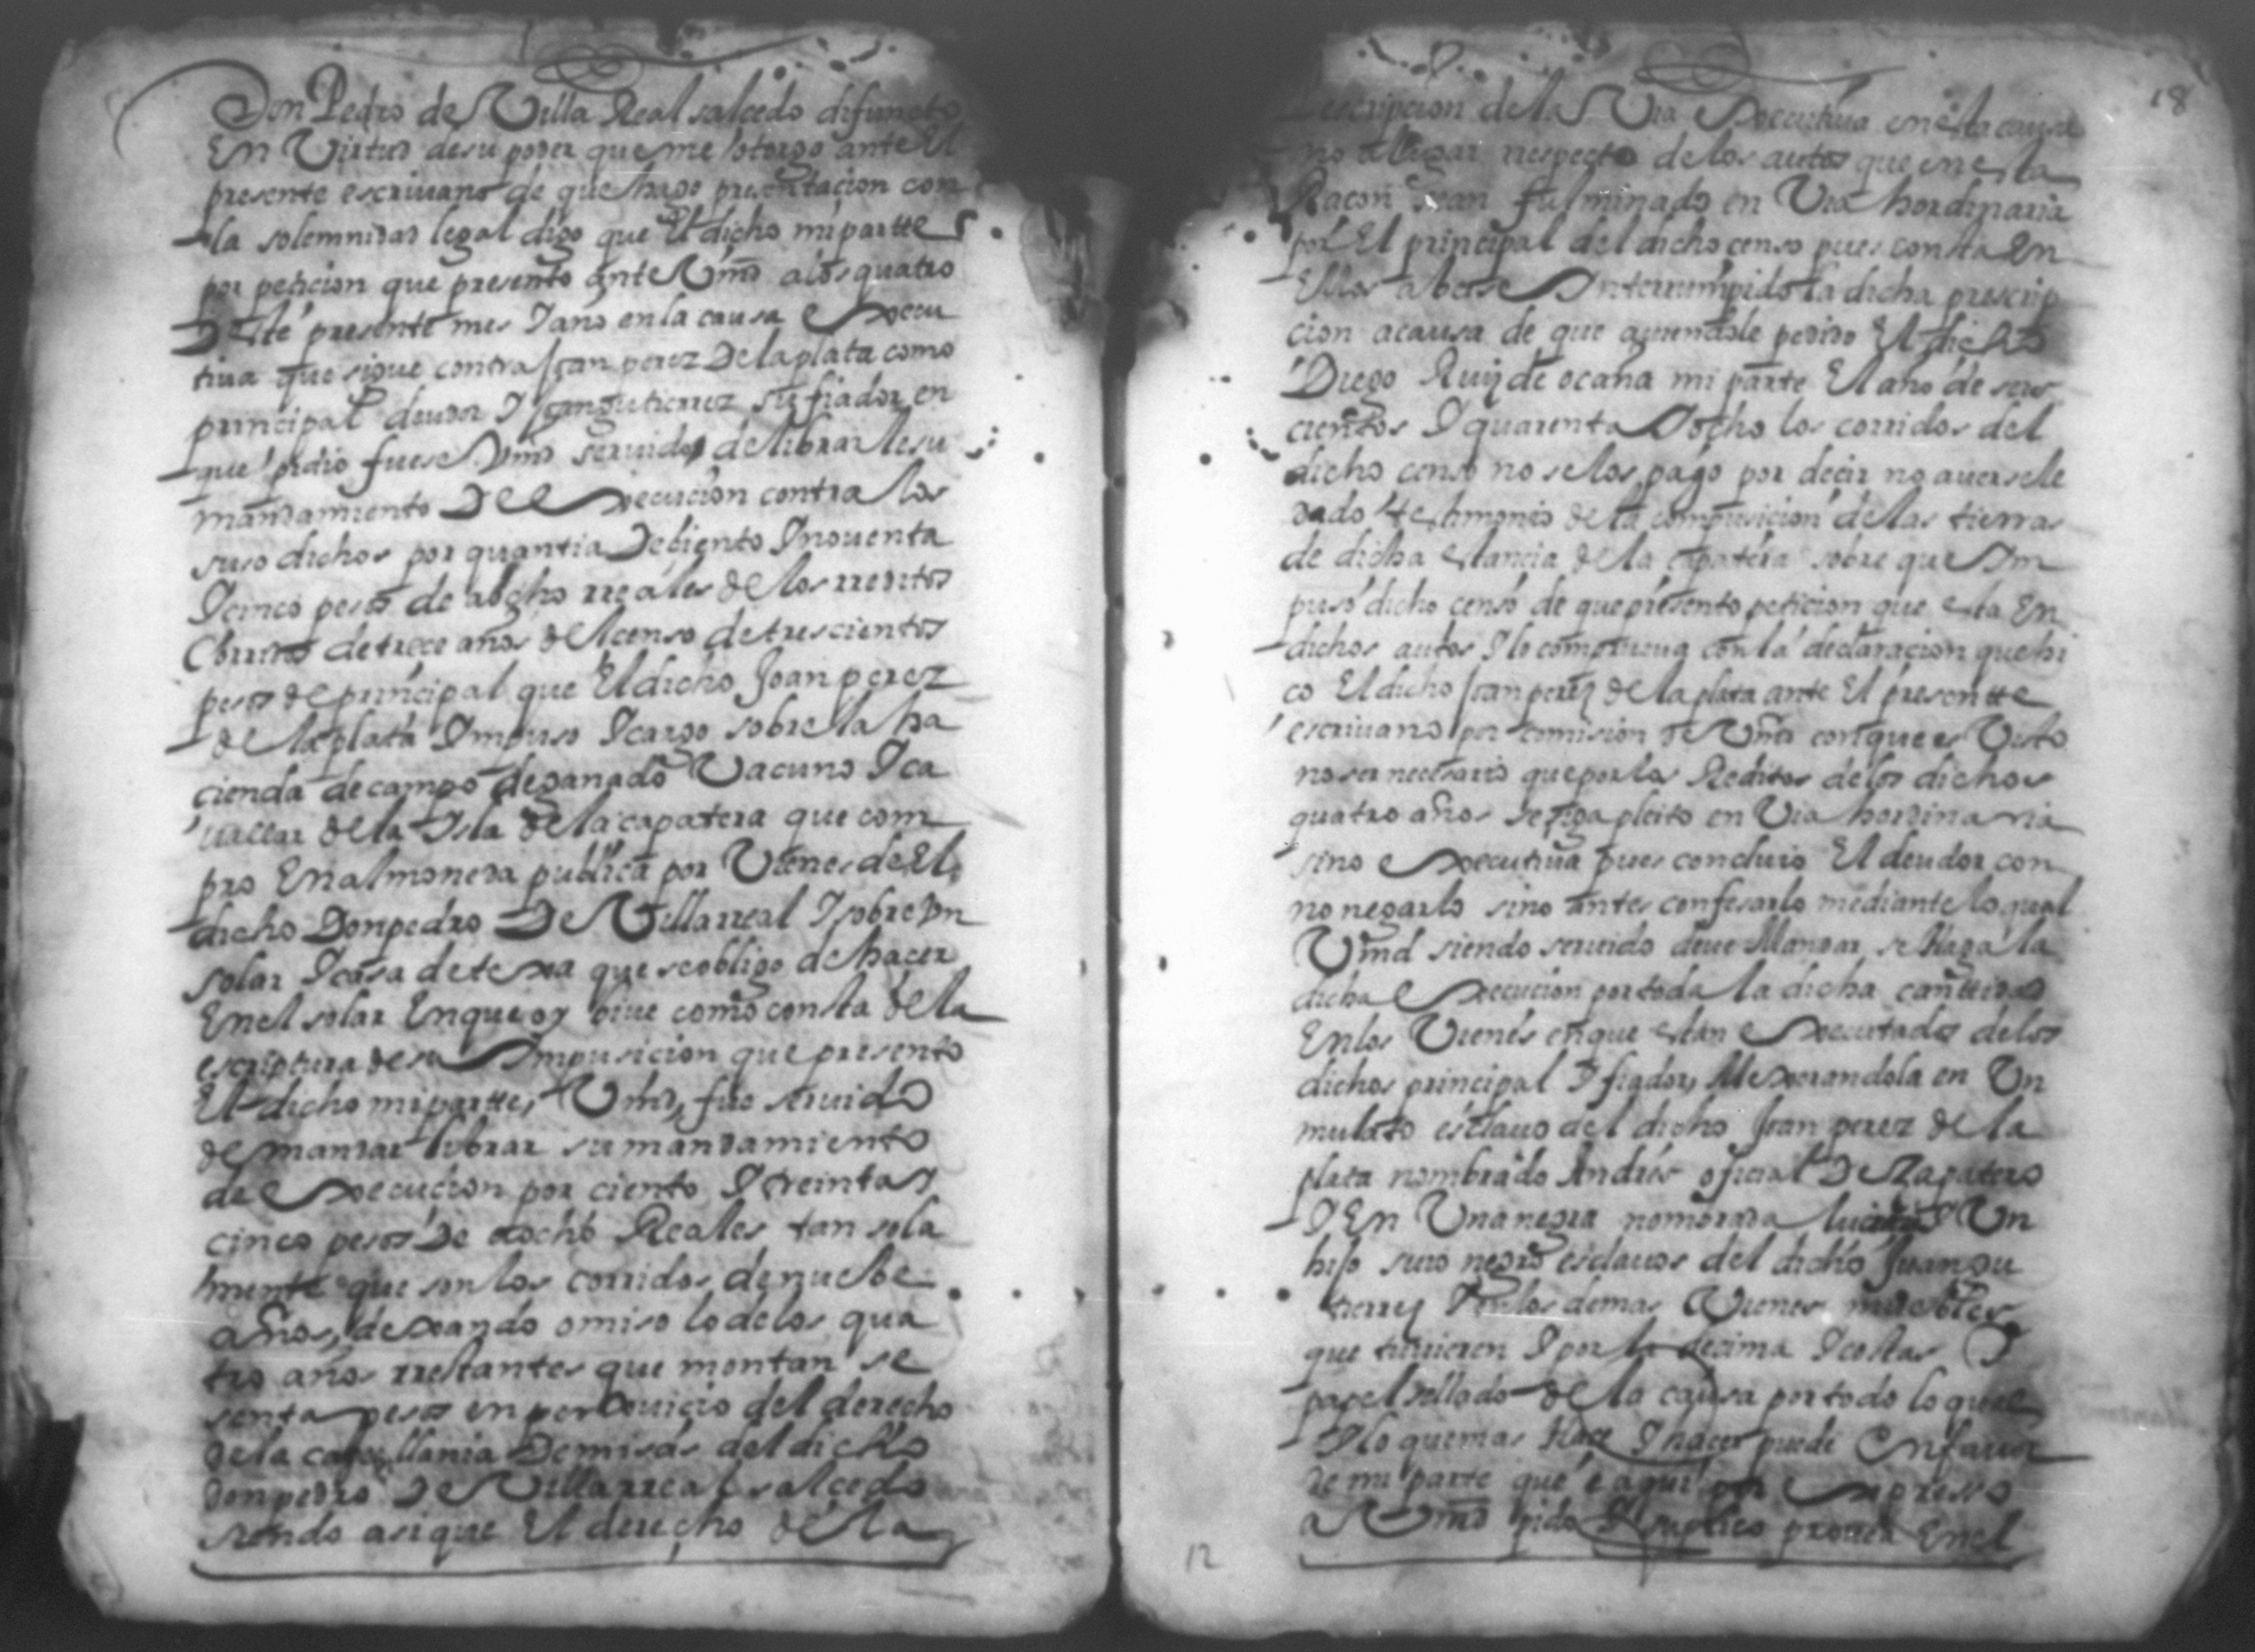 Don Pedro de Villa Real salcedo difuncto
En Virtud de su poder que me otorgo ante El
presente escriuano de que hago presentacion con
la solemnidad legal digo que El dicho mi partte
por peticion que presento ante Vmd a los quatro
Deste presente mes I ano en la causa Execu
tiua que sigue contra Joan perez De la plata como
principal deudor I Joan gutierrez su fiador en
que pidio fuese Vmd seruido de librarle su
mandamiento De Execucion contra los
suso dichos por quantia De ciento I nouenta
I cinco pesos de a ocho rreales de los rreditos
Corridos de trece años del censo de trescientos
pesos de principal que El dicho Joan perez
de la plata Impuso I cargo sobre la ha
cienda de campo de ganado Vacuno I ca
uallar de la Isla de la capatera que com
pro En almoneda publica por Vienes de El
dicho Don pedro De Villarreal I sobre Vn
solar I casa de texa que se obligo de hacer
En el solar En que oy viue como consta de la
escriptura de su Imposicion que presento
El dicho mi partte, Vmd, fue seruido
de mandar librar su mandamiento
de Execucion por ciento I treinta I
cinco pesos De a ocho Reales tan sola
mente que son los corridos de nuebe
años, dexando omiso lo de los qua
tro años rrestantes que montan se
senta pesos en perJuicio del derecho
de la capellania De misas del dicho
don pedro De Villarreal salcedo
siendo asi que El derecho de la
18
Prescripcion de la Via Executiua en esta causa
no a lugar respecto de los autos que en esta
Racon sean fulminado en Via hordinaria
por El principal del dicho censo pues consta En
Ellos aberse Interrumpido la dicha prescrip
cion a causa de que auiendole pedido El dicho
Diego Ruiz de ocaña mi parte El año de seis
cientos I quarenta I ocho los corridos del
dicho censo no se los pago por decir no auersele
dado testimonio de la composicion de las tierras
de dicha estancia de la capatera sobre que Im
puso dicho censo de que presento peticion que esta En
dichos autos I lo comprueua con la declaracion que hi
co El dicho Joan perez de la plata ante El presentte
escriuano por comision de Vmd con que es Visto
no ser necesario que por los Reditos de los dichos
quatro años se siga pleito en Via hordinaria
sino Executiua pues concluio El deudor con
no negarlo sino antes confesarlo mediante lo qual
Vmd siendo seruido deue Mandar se Haga la
dicha Execucion por toda la dicha cantidad
En los Vienes en que estan Executados de los
dichos principal I fiador, Mexorandola en Vn
mulato esclauo del dicho Joan perez de la
plata nombrado Andres oficial De Zapatero
I En Vna negra nombrada I Vn
hijo suio negro esclauos del dicho Juan gu
tierrez I en los demas Vienes muebles
que tuuieren I por la decima I costas I
papel sellado de la causa por todo lo qual
I lo que mas Hace I hacer puede En fauor
de mi parte que e aqui por Expreso
a Vmd pido I suplico prouea En el
12